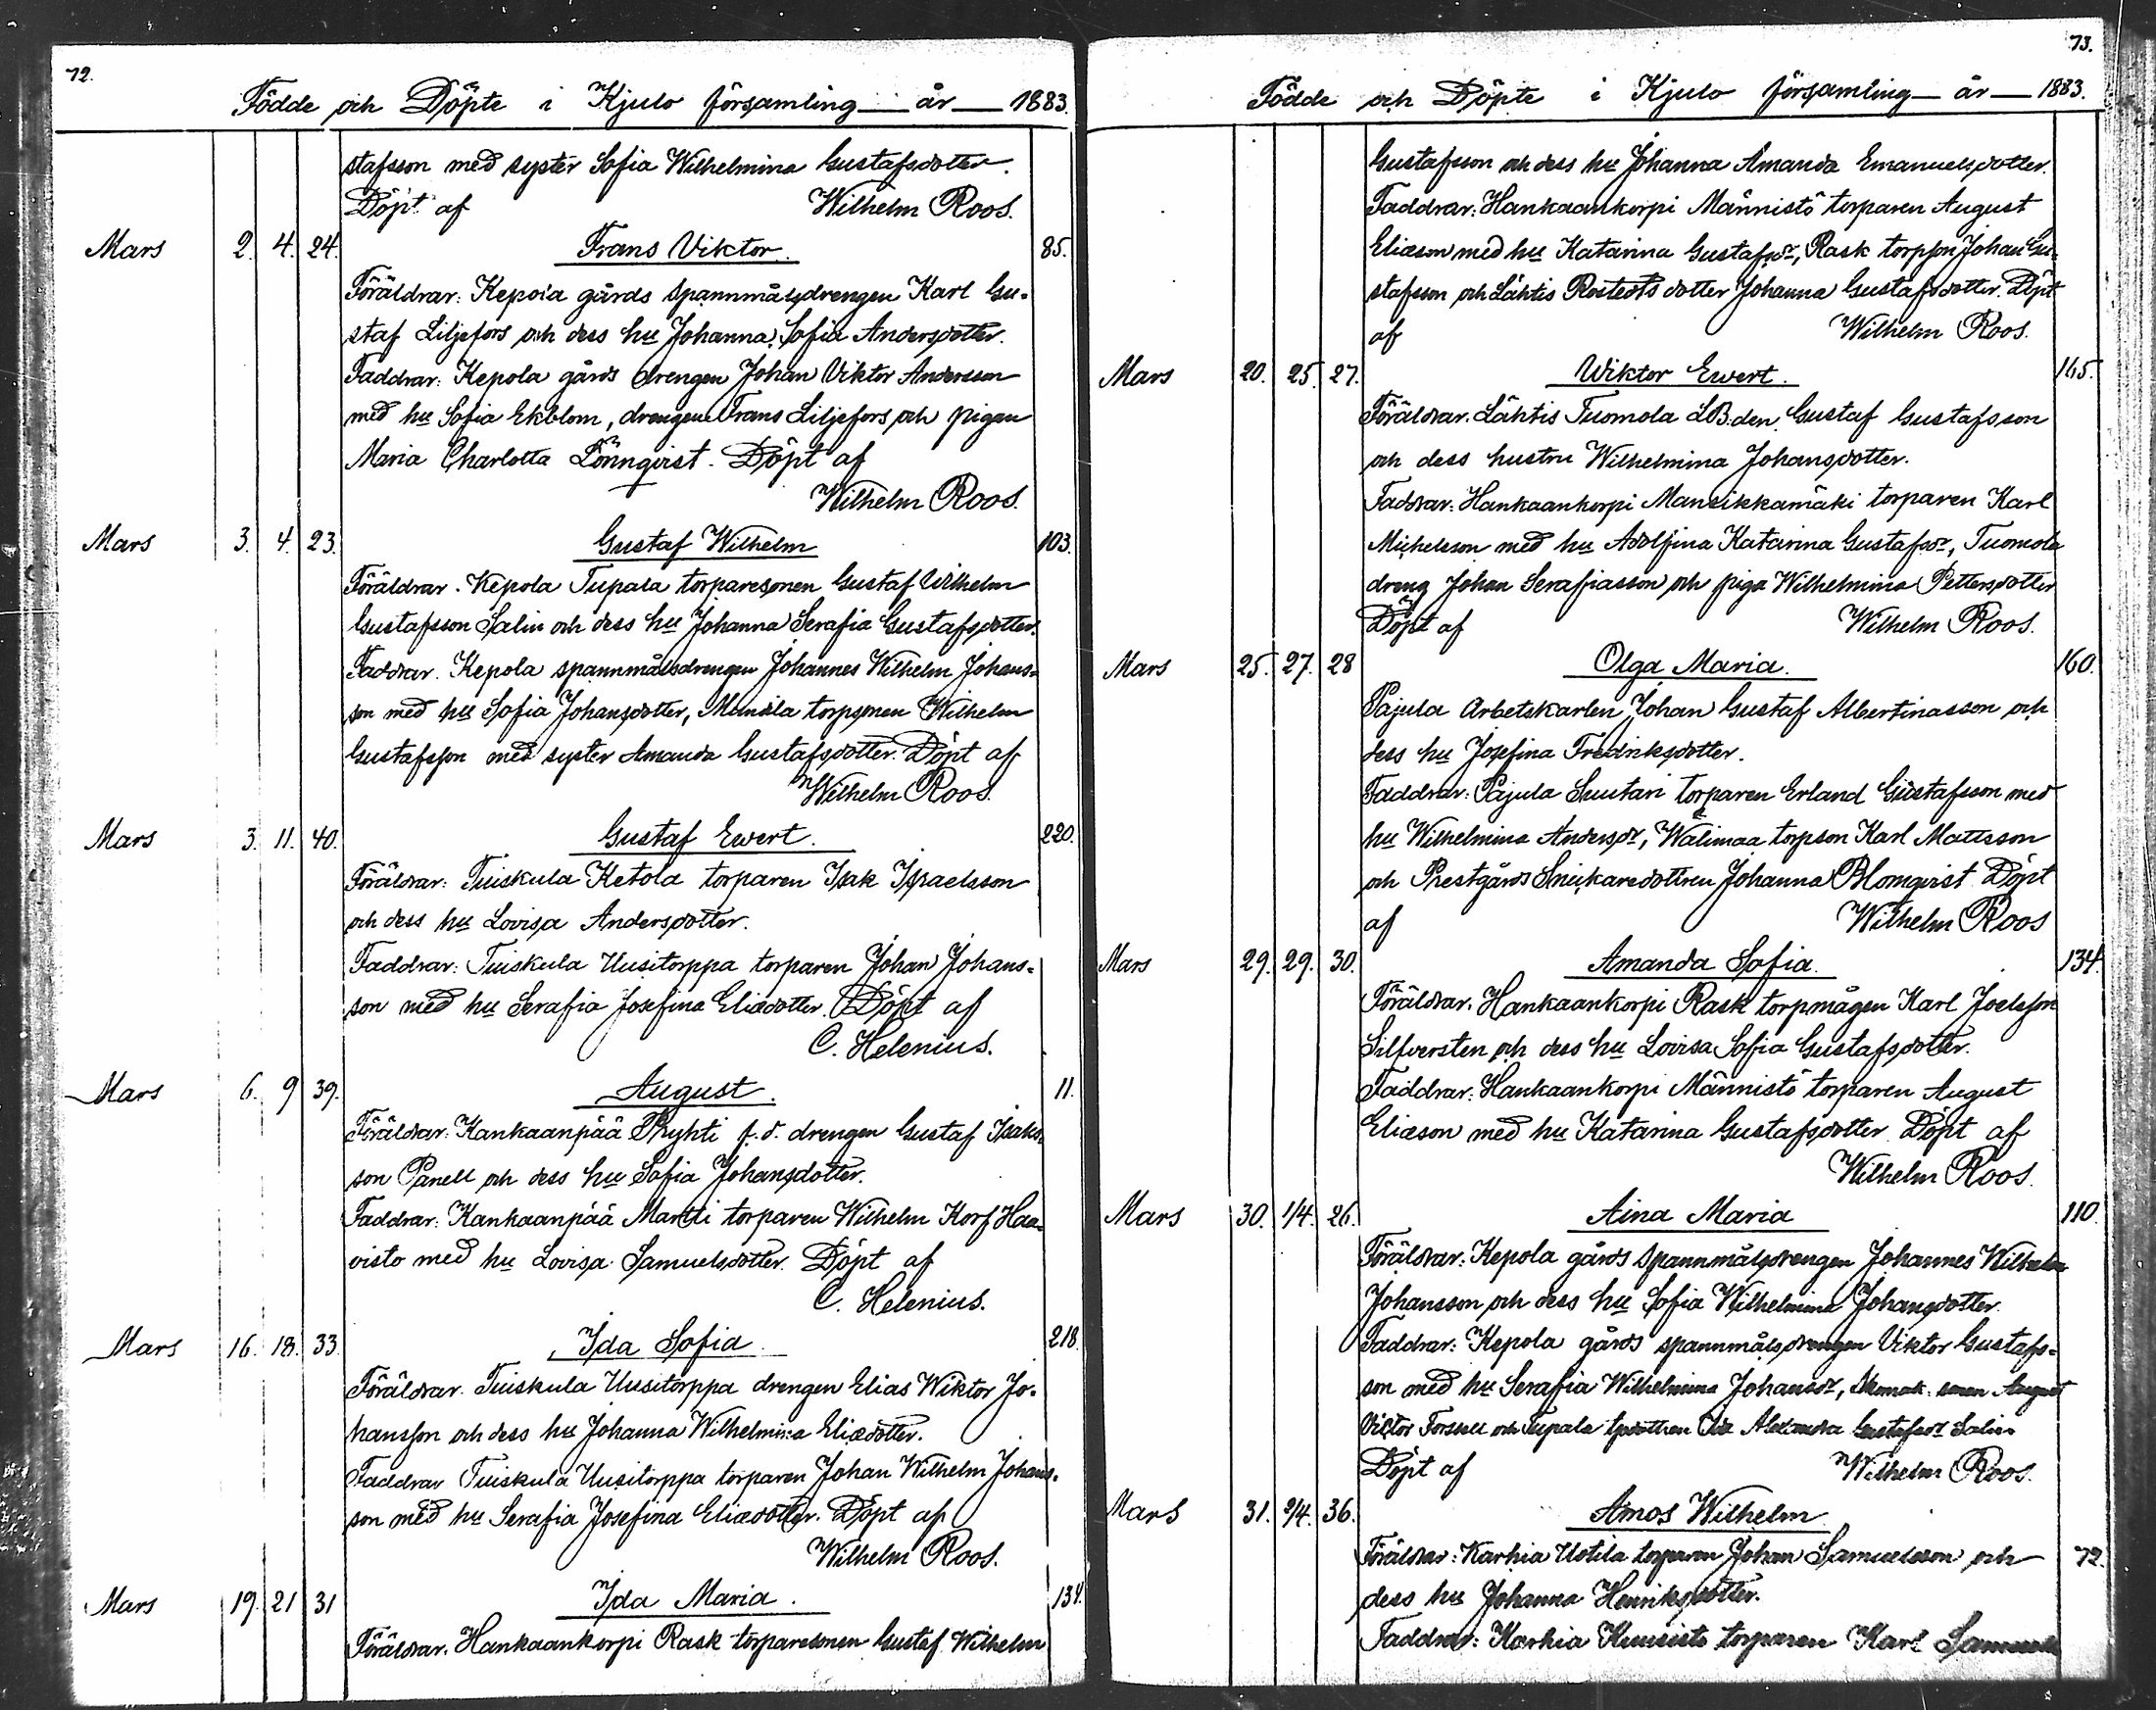 72.
Födde och Döpte i Kjulo församling — år — 1883.
stafsson med syster Sofia Wilhelmina Gustafsdotter.
Döpt af Wilhelm Roos.
Mars 2. 4. 24. Frans Viktor. 85.
Föräldrar: Kepola gårds spannmålsdrengen Karl Gu-
staf Liljefors och dess hu Johanna Sofia Andersdotter.
Faddrar: Kepola gårds drengen Johan Viktor Andersson
med hu Sofia Ekblom, drengen Frans Liljefors och pigan
Maria Charlotta Lönnqvist. Döpt af
Wilhelm Roos.
Mars 3. 4. 23. Gustaf Wilhelm 103.
Föräldrar. Kepola Tupala torparesonen Gustaf Wilhelm
Gustafsson Salin och dess hu Johanna Serafia Gustafsdotter.
Faddrar. Kepola spannmålsdrengen Johannes Wilhelm Johans-
son med hu Sofia Johansdotter, torpsonen Wilhelm
Gustafsson med syster Amanda Gustafsdotter. Döpt af
Wilhelm Roos.
Mars 3. 11. 40. Gustaf Ewert. 220.
Föräldrar: Tuiskula Ketola torparen Isak Israelsson
och dess hu Lovisa Andersdotter.
Faddrar: Tuiskula Uusitorppa torparen Johan Johans-
son med hu Serafia Josefina Eliædotter. Döpt af
C. Helenius.
Mars 6. 9 39. August. 11.
Föräldrar: Kankaanpää Pryhti f.d. drengen Gustaf Isaks-
son Panell och dess hu Sofia Johansdotter.
Faddrar: Kankaanpää Martti torparen Wilhelm Korf Haa-
visto med hu Lovisa Samuelsdotter. Döpt af
C. Helenius.
Mars 16. 18. 33. Ida Sofia 218.
Föräldrar. Tuiskula Uusitorppa drengen Elias Wiktor Jo-
hansson och dess hu Johanna Wilhelmina Eliædotter.
Faddrar Tuiskula Uusitorppa torparen Johan Wilhelm Johans-
son med hu Serafia Josefina Eliædotter. Döpt af
Wilhelm Roos.
Mars 19. 21 31 Ida Maria. 134.
Föräldrar. Hankaankorpi Rask torparesonen Gustaf Wilhelm
73.
Födde och Döpte i Kjulo församling — år — 1883.
Gustafsson och dess hu Johanna Amanda Emanuelsdotter.
Faddrar: Hankaankorpi Männistö torparen August
Eliæson med hu Katarina Gustafsdr, Rask torpson Johan Gu-
stafsson och Lähtis Rostedts dotter Johanna Gustafsdotter. Döpt
af Wilhelm Roos.
Mars 20. 25. 27. Wiktor Ewert. 165.
Föräldrar. Lähtis Tuomola LB.den Gustaf Gustafsson
och dess hustru Wilhelmina Johansdotter.
Faddrar: Hankaankorpi Mansikkamäki torparen Karl
Michelsson med hu Adolfina Katarina Gustafsdr, Tuomola
dreng Johan Serafiasson och piga Wilhelmina Pettersdotter
Döpt af Wilhelm Roos.
Mars 25. 27. 28 Olga Maria. 160.
Pajula Arbetskarlen Johan Gustaf Albertinasson och
dess hu Josefina Fredriksdotter.
Faddrar: Pajula Suutari torparen Erland Gustafsson med
hu Wilhelmina Andersdr, Wälimaa torpson Karl Mattsson
och Prestgårds Snickaredottren Johanna Blomqvist Döpt
af Wilhelm Roos
Mars 29. 29. 30. Amanda Sofia. 134.
Föräldrar. Hankaankorpi Rask torpmågen Karl Joelsson
Silfversten och dess hu Lovisa Sofia Gustafsdotter.
Faddrar: Hankaankorpi Männistö torparen August
Eliæson med hu Katarina Gustafsdotter Döpt af
Wilhelm Roos.
Mars 30. 1/4. 26. Aina Maria 110.
Föräldrar: Kepola gårds spannmålsdrengen Johannes Wilhelm
Johansson och dess hu Sofia Wilhelmina Johansdotter.
Faddrar: Kepola gårds spannmålsdrengen Viktor Gustafs-
son med hu Serafia Wilhelmina Johansdr, Skomak. sonen August
Victor Forssell och Tupala tpdottren Ida Alexandra Gustafsdr Salin
Döpt af Wilhelm Roos.
Mars 31. 2/4. 36. Amos Wilhelm
Föräldrar: Karhia Uotila torparen Johan Samuelsson och 72.
dess hu Johanna Henriksdotter.
Faddrar: Karhia Kuusisto torparen Karl Samuels